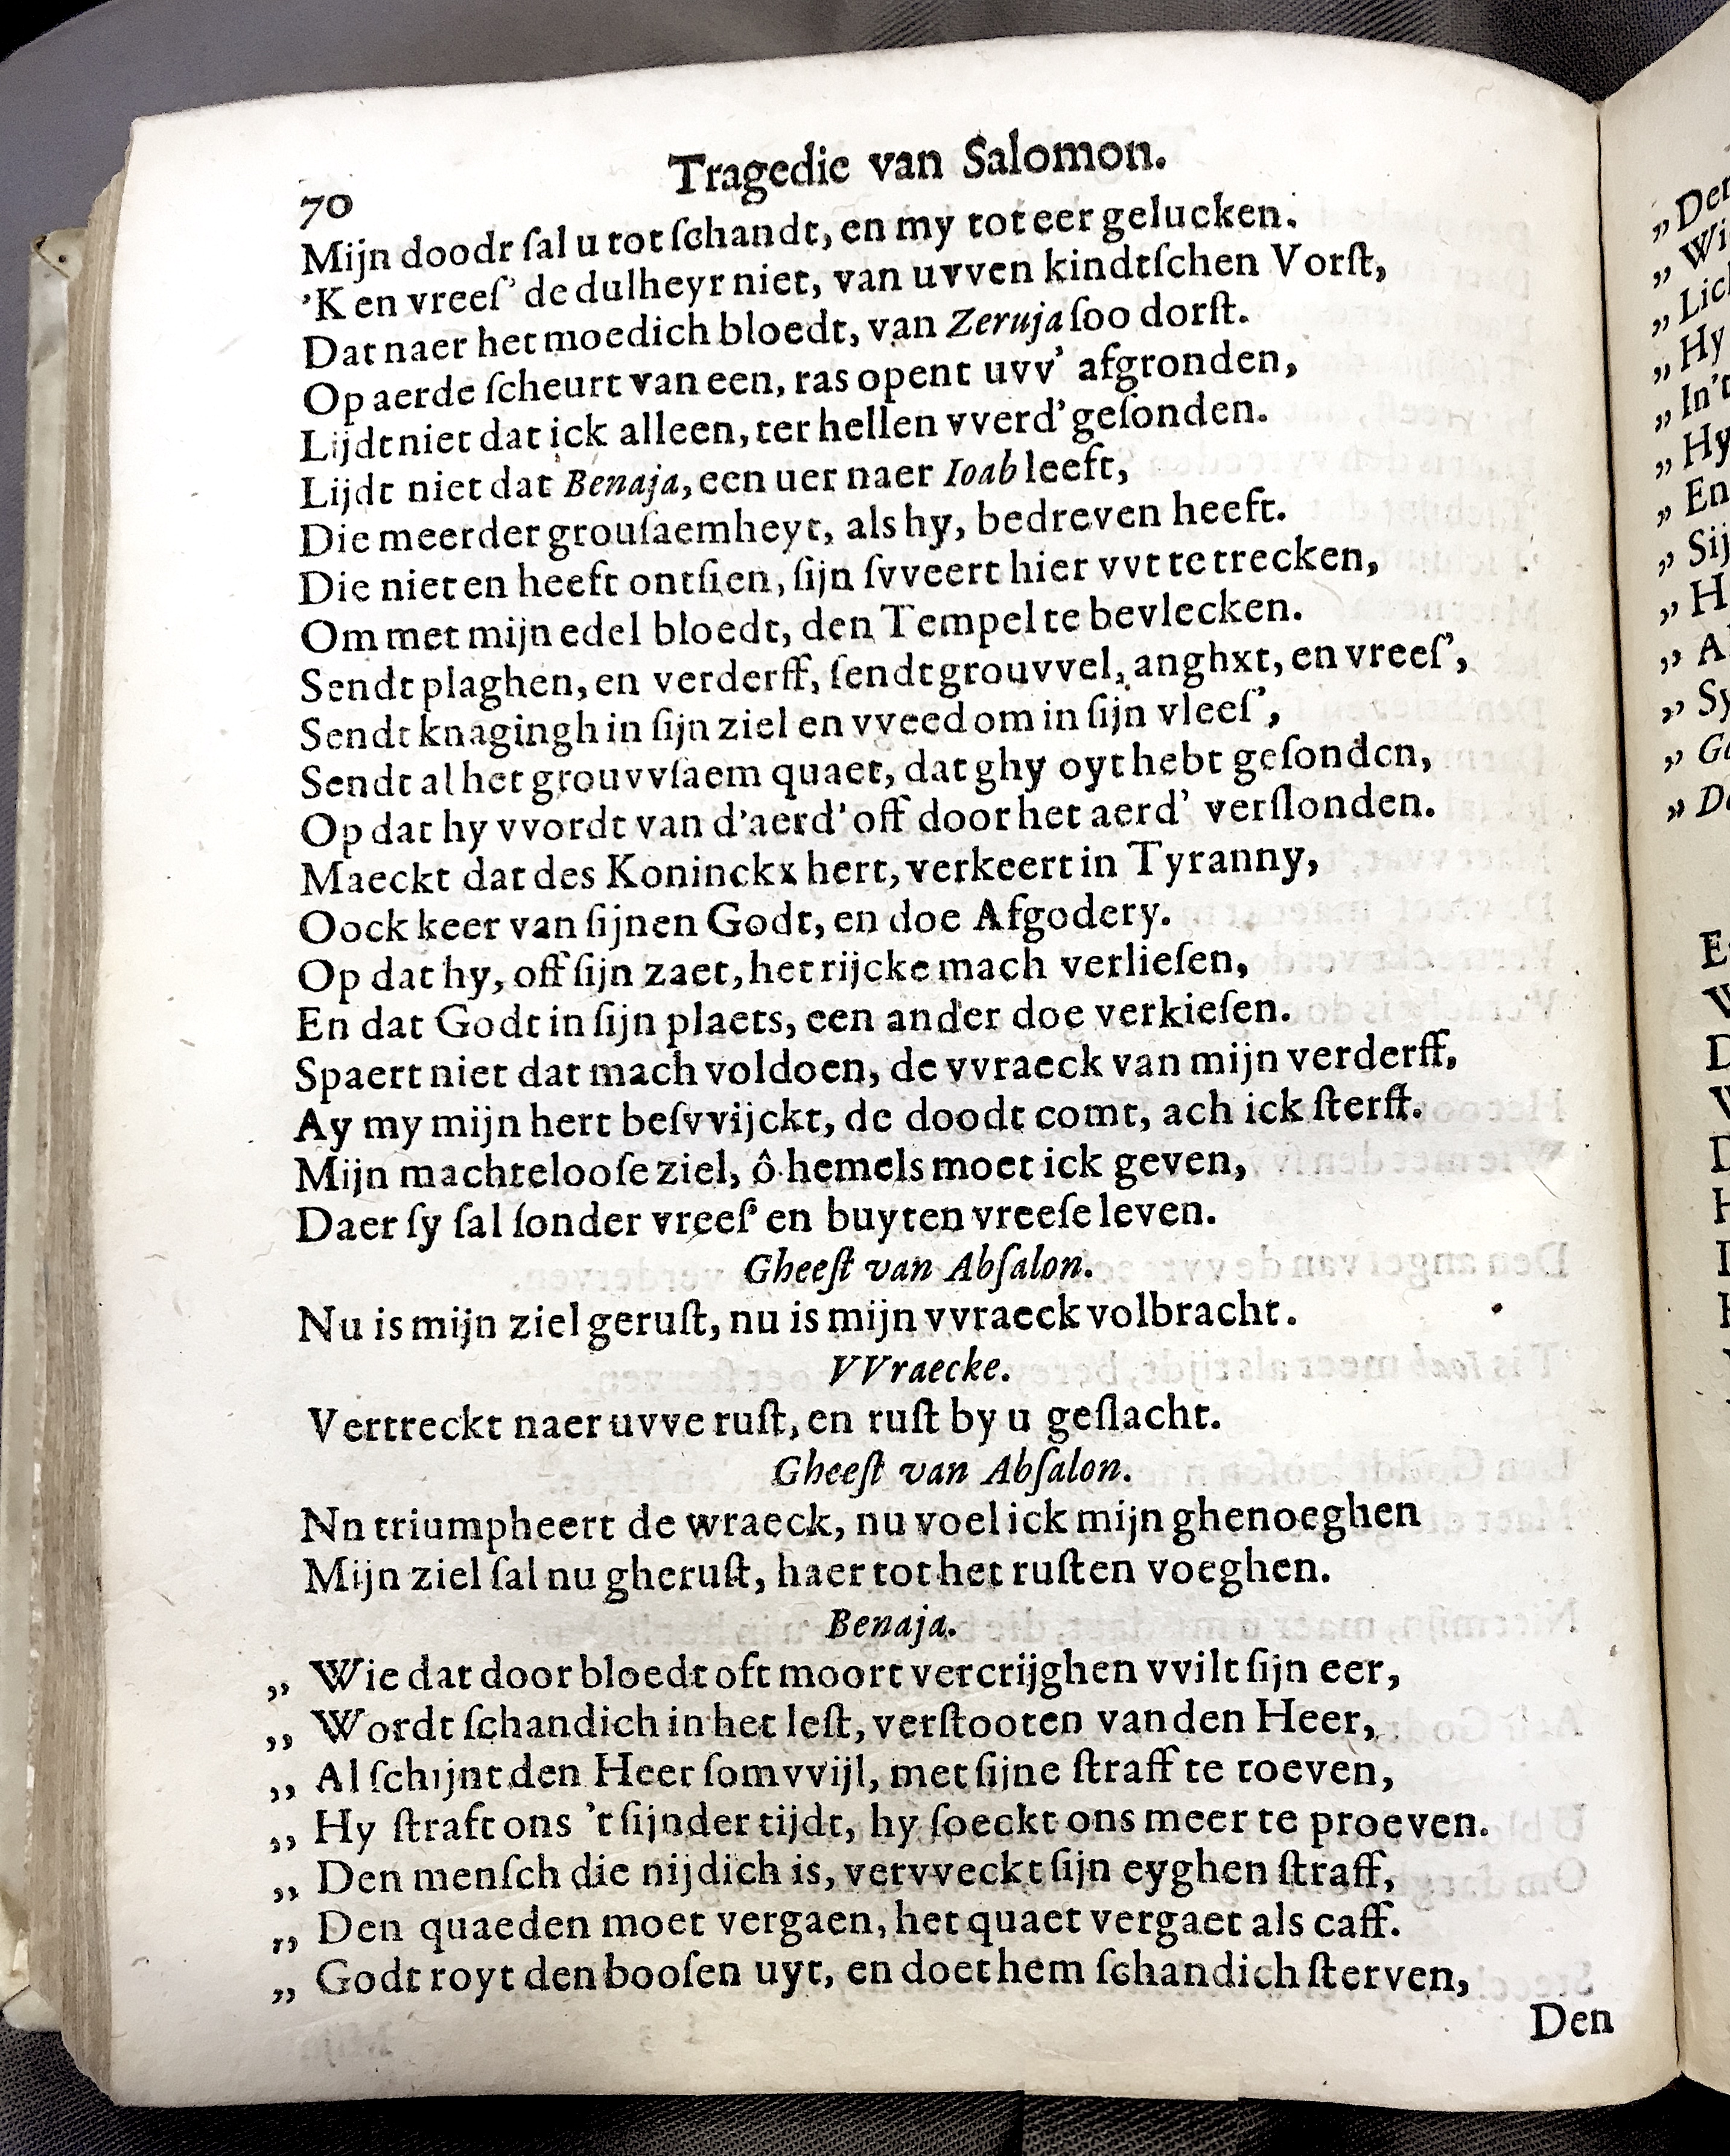 Tragedie van Salomon.
70
Mijn doodt ſal u tot ſchandt, en my tot eer gelucken.
’K en vreeſ’ de dulheyt niet, van uvven kindtſchen Vorſt,
Dat naer het moedich bloedt, van Zeruja ſoo dorſt.
Op aerde ſcheurt van een, ras opent uvv’ afgronden,
Lijdt niet dat ick alleen, ter hellen vverd’ geſonden.
Lijdt niet dat Benaja, een uer naer Ioab leeft,
Die meerder grouſaemheyt, als hy, bedreven heeft.
Die niet en heeft ontſien, ſijn ſvveert hier vvt te trecken,
Om met mijn edel bloedt, den Tempel te bevlecken.
Sendt plaghen, en verderff, ſendt grouvvel, anghxt, en vreeſ’,
Sendt knagingh in ſijn ziel en vveedom in ſijn vleeſ’,
Sendt al het grouvvſaem quaet, dat ghy oyt hebt geſonden,
Op dat hy vvordt van d’aerd’ off door het aerd’ verſlonden.
Maeckt dat des Koninckx hert, verkeert in Tyranny,
Oock keer van ſijnen Godt, en doe Afgodery.
Op dat hy, off ſijn zaet, het rijcke mach verlieſen,
En dat Godt in ſijn plaets, een ander doe verkieſen.
Spaert niet dat mach voldoen, de vvraeck van mijn verderff,
Ay my mijn hert beſvvijckt, de doodt comt, ach ick ſterff.
Mijn machtelooſe ziel, ô hemels moet ick geven,
Daer ſy ſal ſonder vreeſ’ en buyten vreeſe leven.
Gheeſt van Abſalon.
Nu is mijn ziel geruſt, nu is mijn vvraeck volbracht.
VVraecke.
Vertreckt naer uvve ruſt, en ruſt by u geſlacht.
Gheeſt van Abſalon.
Nn triumpheert de wraeck, nu voel ick mijn ghenoeghen
Mijn ziel ſal nu gheruſt, haer tot het ruſten voeghen.
Benaja.
„ Wie dat door bloedt oft moort vercrijghen vvilt ſijn eer,
„ Wordt ſchandich in het leſt, verſtooten van den Heer,
„ Al ſchijnt den Heer ſomvvijl, met ſijne ſtraff te toeven,
„ Hy ſtraft ons ’t ſijnder tijdt, hy ſoeckt ons meer te proeven.
„ Den menſch die nijdich is, vervveckt ſijn eyghen ſtraff,
„ Den quaeden moet vergaen, het quaet vergaet als caff.
„ Godt royt den booſen uyt, en doet hem ſchandich ſterven,
Den